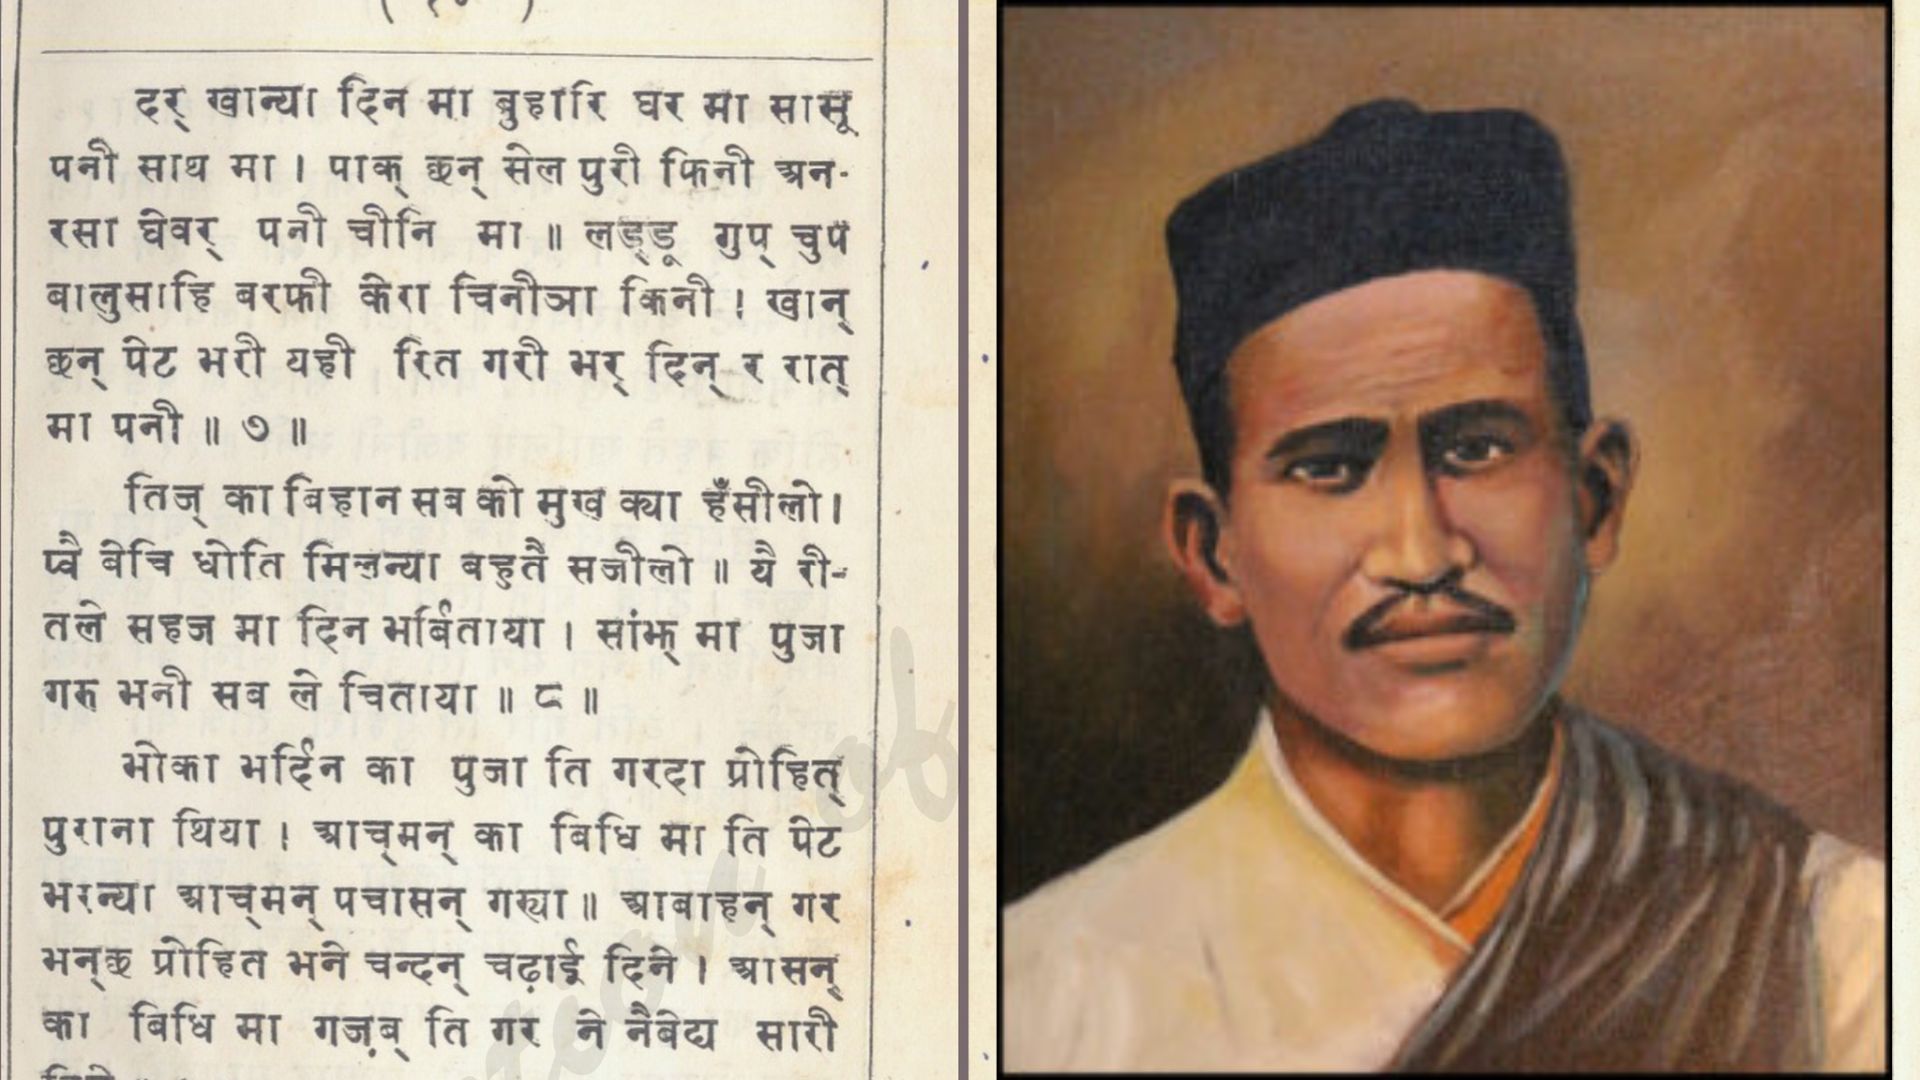 दर् खान्या दिन मा बुहारि घर मा सासू
पनी साथ मा । पाक् छन् सेल पुरी फिनी अन-
रसा घेवर् पनी चीनि मा ॥ लड्डू गुप् चुप
बालुसाहि बरफी केरा चिनीञा किनी । खान्
छन् पेट भरी यही रित गरी भर् दिन् र रात्
मा पनी ॥ ७ ॥
तिज् का बिहान सब को मुख क्या हँसीलो ।
प्वै बेचि धोति मिलन्या बहुतै सजीलो ॥ यै री-
तले सहज मा दिन भर्बिताया । सांझ् मा पुजा
गरु भनी सब ले चिताया ॥ ८ ॥
भोका भर्दिन का पुजा ति गरदा प्रोहित्
पुराना थिया । आच्मन् का बिधि मा ति पेट
भरन्या आच्मन् पचासन् गर्‍या ॥ आबाहन् गर
भन्छ प्रोहित भने चन्दन् चढ़ाई दिने । आसन्
का बिधि मा गज़ब् ति गर ने नैबेद्य सारी